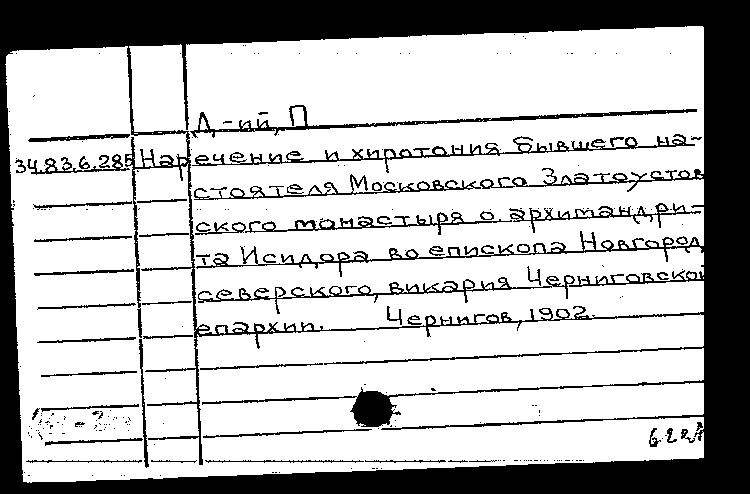 Д-ий, П
34.83.6.285 Наречение и хиротония бывшего на-
стоятеля Московского Златоустов
ского монастыря о. архимандри-
та Исидора во епископа Новгород,
северского, викария Черниговской
епархии. Чернигов, 1902.